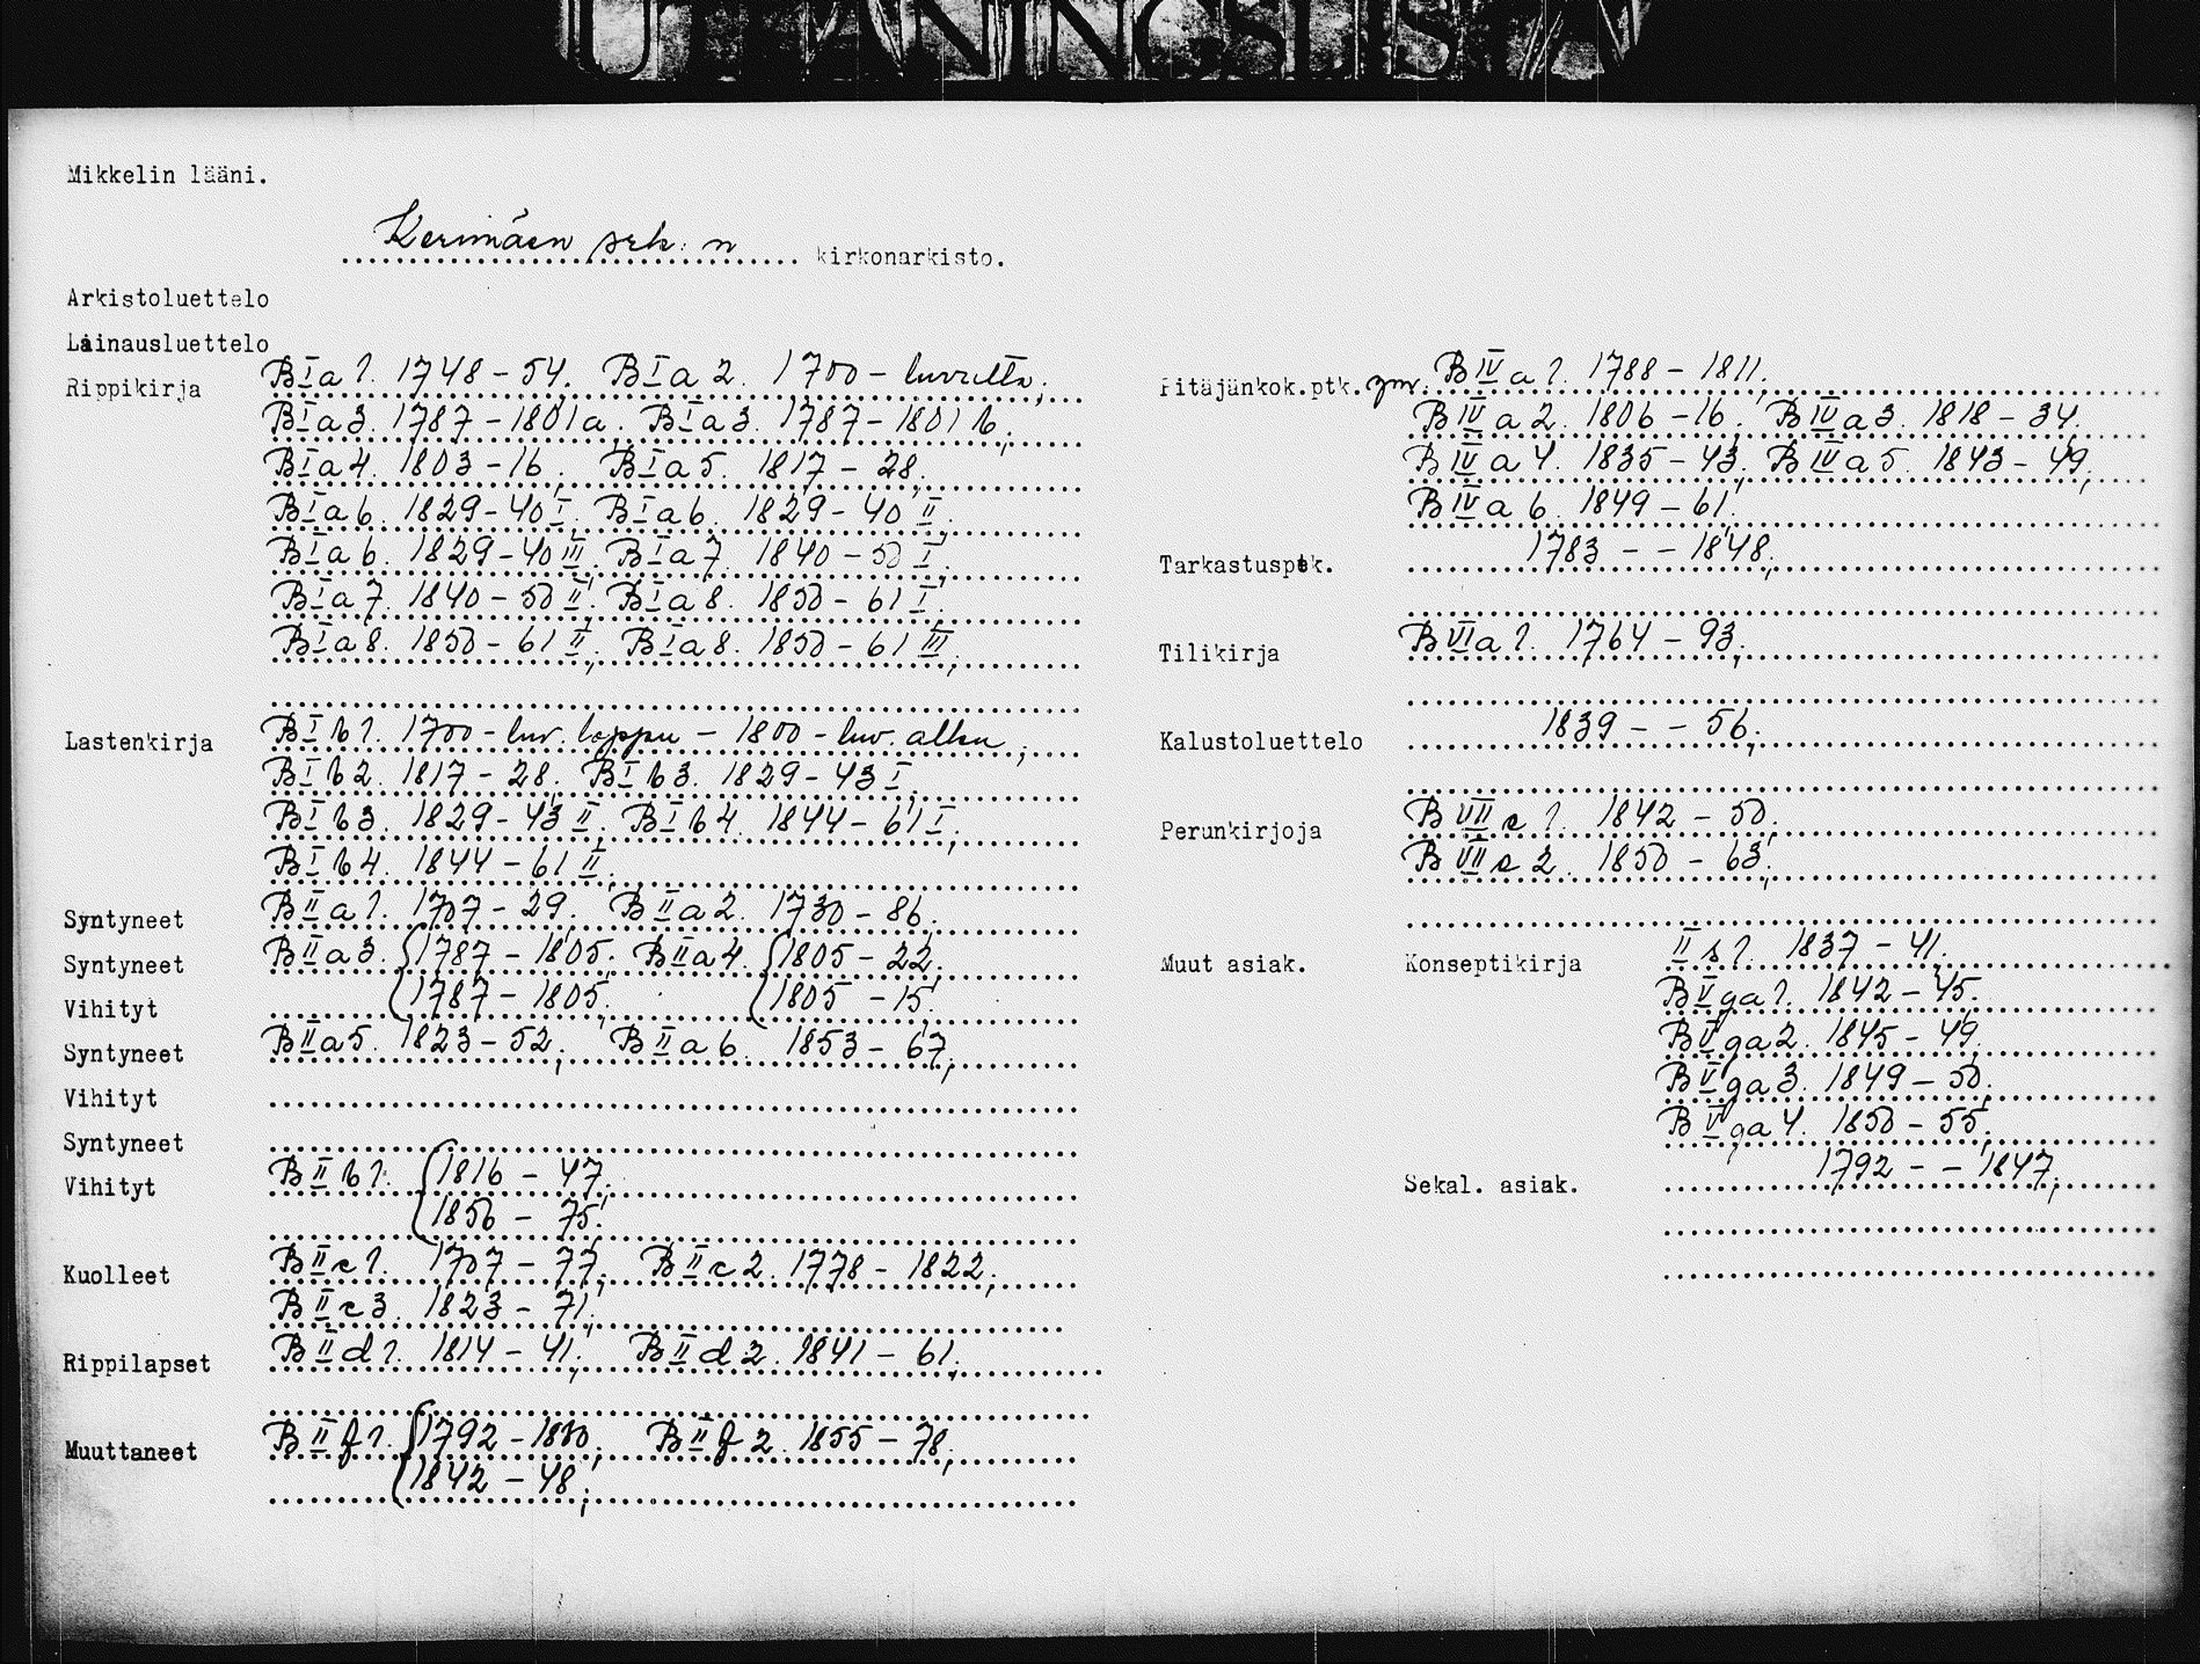 UTLÅNINGSLISTA
Mikkelin lääni.
Kerimäen srk:n kirkonarkisto.
Arkistoluettelo
Lainausluettelo
Rippikirja BIa1. 1748-54. BIa2. 1700-luvulta;
BIa3. 1787-1801a. BIa3. 1787-1801b;
BIa4. 1803-16. BIa5. 1817-28;
BIa6. 1829-40 I; BIa6. 1829-40 II;
BIa6. 1829-40 III; BIa7. 1840-50 I;
BIa7. 1840-50 II; BIa8. 1850-61 I;
BIa8. 1850-61 II; BIa8. 1850-61 III;
Lastenkirja BIb1. 1700-luv. loppu - 1800-luv. alku;
BIb2. 1817-28; BIb3. 1829-43 I;
BIb3. 1829-43 II; BIb4. 1844-61 I;
BIb4. 1844-61 II;
Syntyneet BIIa1. 1707-29; BIIa2. 1730-86;
Syntyneet BIIa3. {1787-1805; BIIa4. {1805-22;
Vihityt {1787-1805; {1805-15;
Syntyneet BIIa5. 1823-52; BIIa6. 1853-67;
Vihityt
Syntyneet
Vihityt BIIb1. {1816-47;
1856-75;
Kuolleet BIIc1. 1707-77; BIIc2. 1778-1822;
BIIc3. 1823-71;
Rippilapset BIId1. 1814-41; BIId2. 1841-61;
Muuttaneet BIIf1. {1792-1830; BIIf2. 1855-78;
{1842-48;
Pitäjänkok.ptk. ym. BIVa1. 1788-1811;
BIVa2. 1806-16; BIVa3. 1818-34;
BIVa4. 1835-43; BIVa5. 1843-49;
BIVa6. 1849-61;
Tarkastusptk. 1783--1848;
Tilikirja BVIa1. 1764-93;
Kalustoluettelo 1839--56;
Perunkirjoja BVIIc1. 1842-50;
BVIIc2. 1850-63;
Muut asiak. Konseptikirja 1837-41;
BVga1. 1842-45;
BVga2. 1845-49;
BVga3. 1849-50;
BVga4. 1850-55;
Sekal. asiak. 1792--1847;